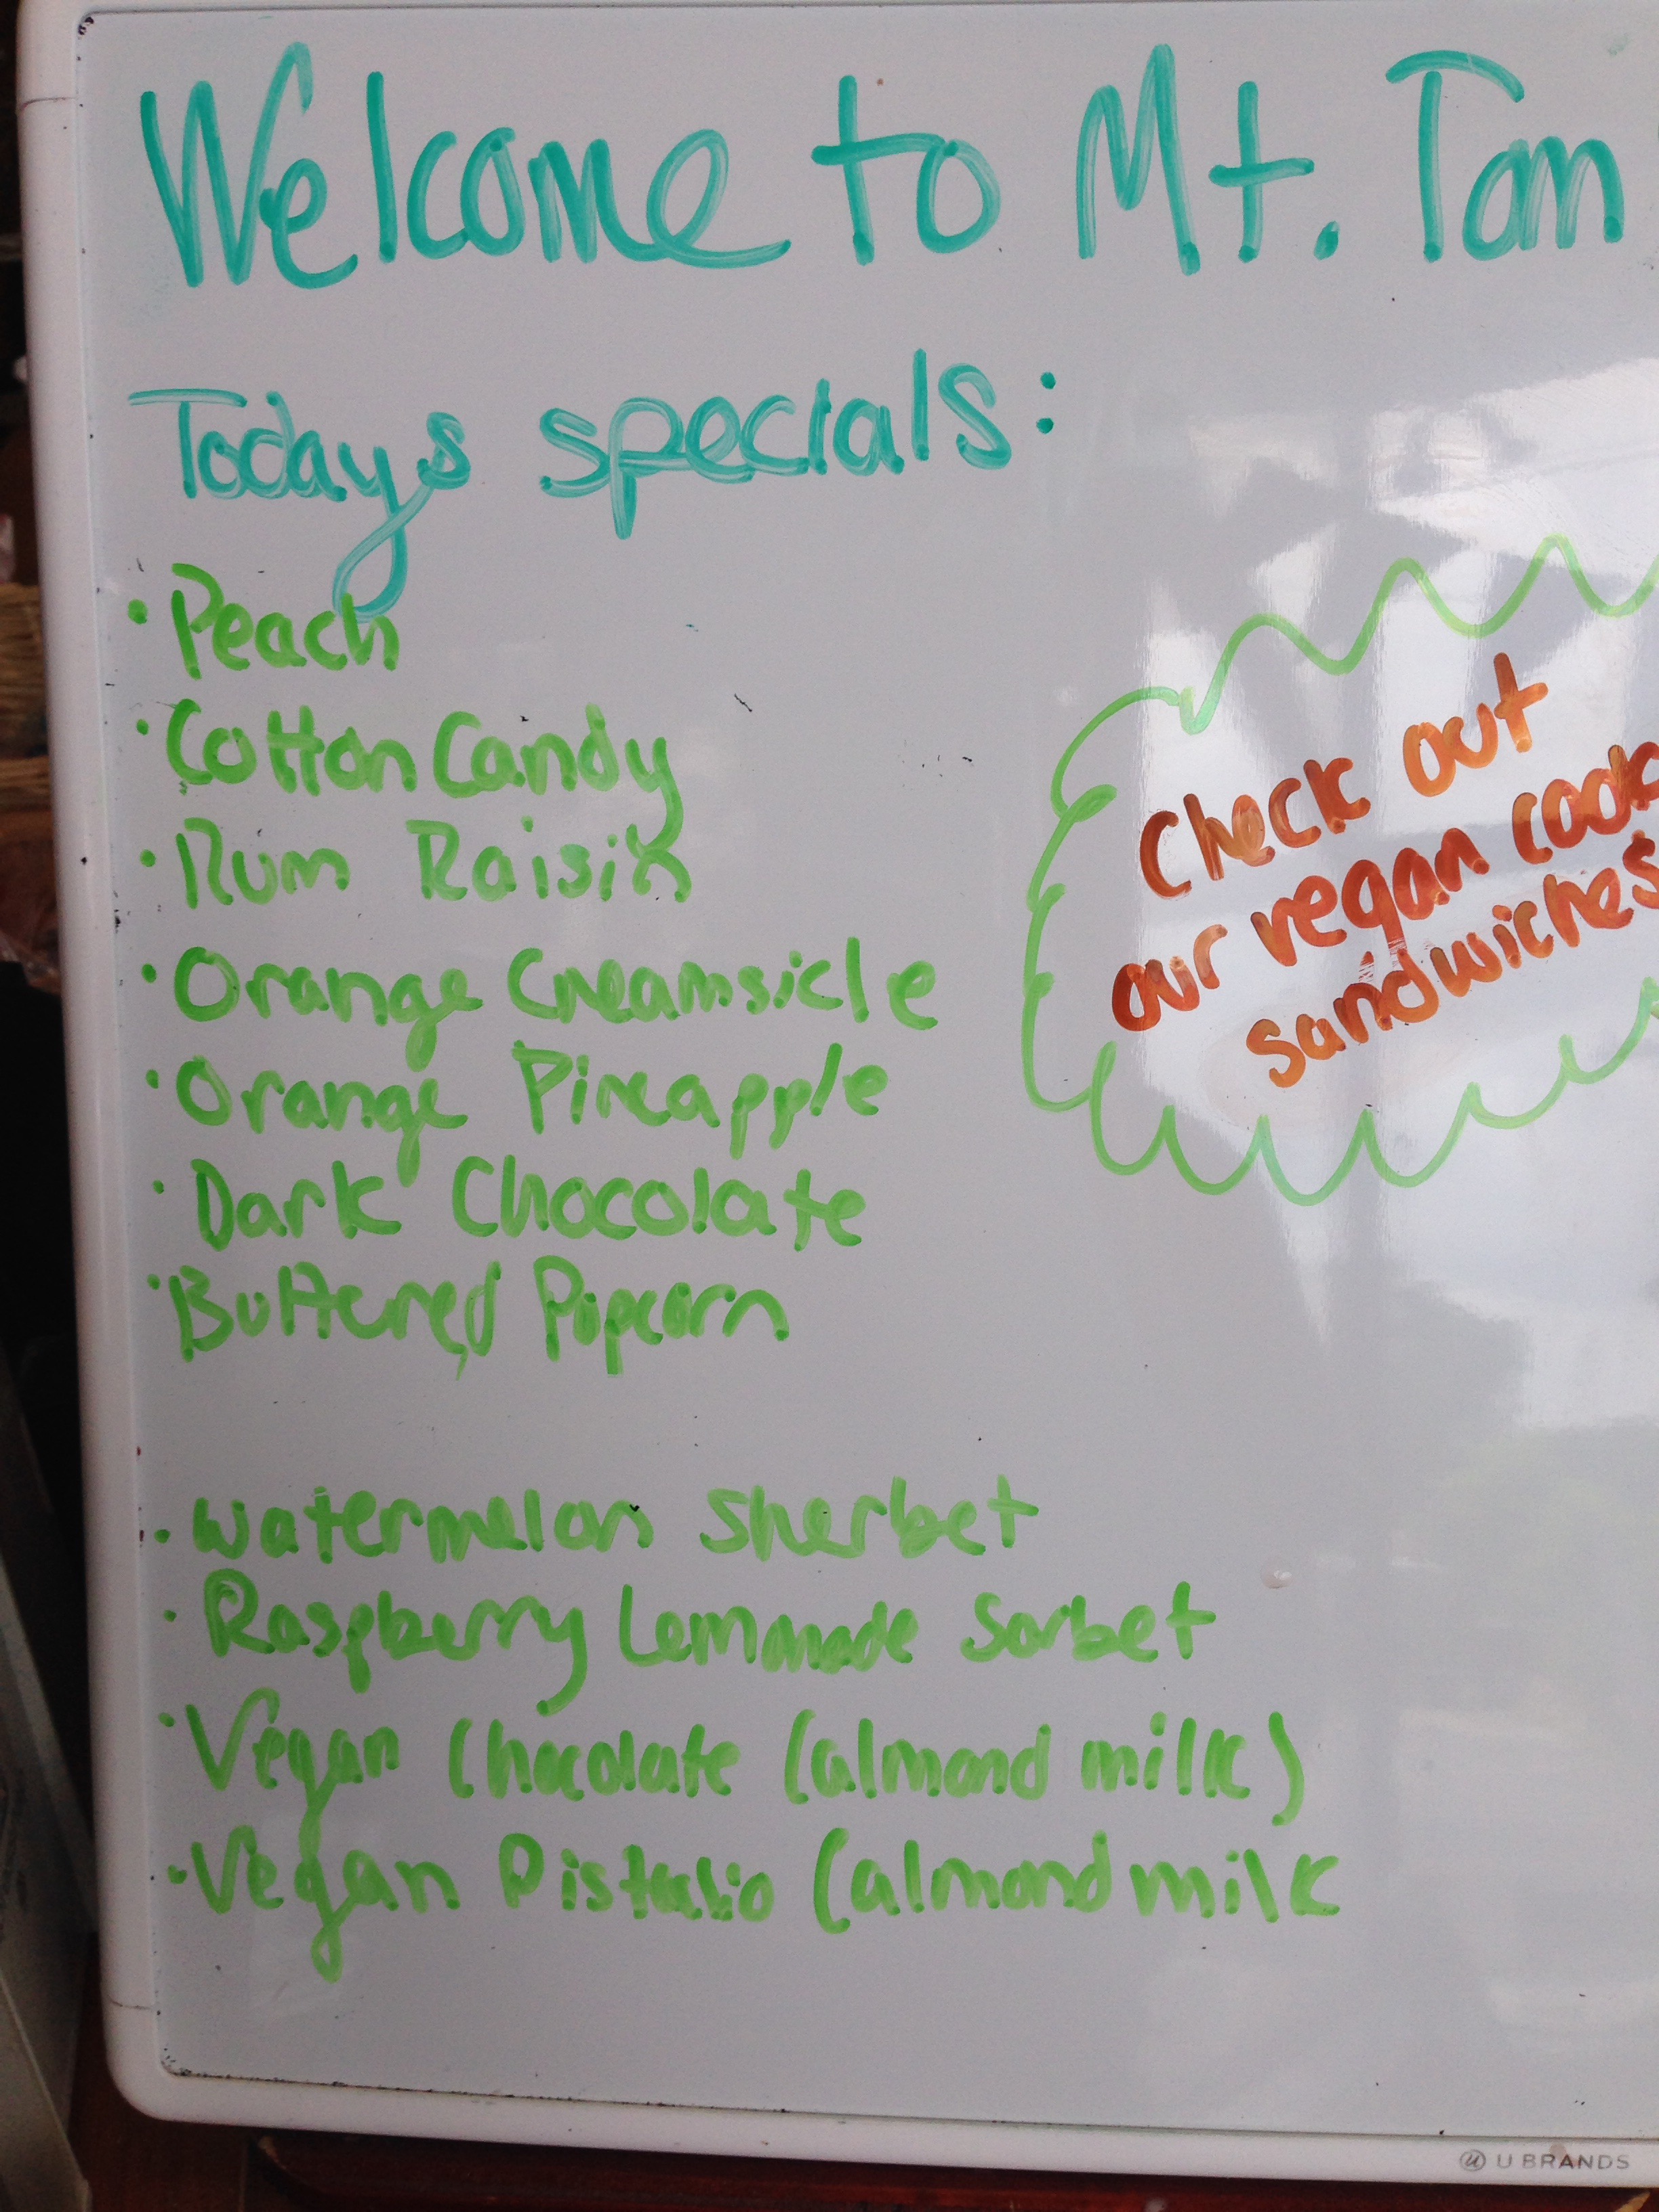 Welcome to Mt. Tam
Todays specials:
• Peach
• Cotton Candy
• Rum Raisin
• Orange Creamsicle
• Orange Pineapple
• Dark Chocolate
• Buttered Popcorn
Check out
our vegan cook
sandwiches
• Watermelon Sherbet
• Raspberry Lemonade Sorbet
• Vegan Chocolate (almond milk)
• Vegan Pistachio (almond milk
U BRANDS